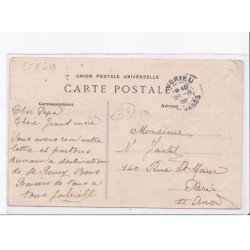 UNION POSTALE UNIVERSELLE
CARTE POSTALE
Correspondance
Adresse
Cher Papa
Chère Grand mère
Nous avons reçu votre
lettre et partons
demain a destination
de St Remy Bons
Baisers de nous à
tous Gabriell
Monsieur
140 Rue St Maur
Paris